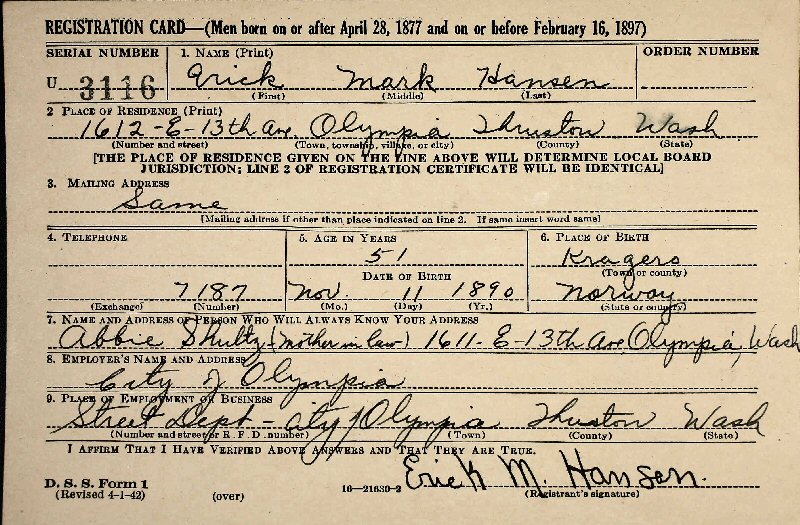 REGISTRATION CARD—(Men born on or after April 28, 1877 and on or before February 16, 1897)
SERIAL NUMBER 1. NAME (Print) ORDER NUMBER
U 3116 Erick Mark Hansen
(First) (Middle) (Last)
2 PLACE OF RESIDENCE (Print)
1612-E-13th Ave. Olympia Thruston Wash
(Number and street) (Town, township, village, or city) (County) (State)
[THE PLACE OF RESIDENCE GIVEN ON THE LINE ABOVE WILL DETERMINE LOCAL BOARD
JURISDICTION; LINE 2 OF REGISTRATION CERTIFICATE WILL BE IDENTICAL]
3. MAILING ADDRESS
Same
[Mailing address if other than place indicated on line 2. If same insert word same]
4. TELEPHONE 5. AGE IN YEARS 6. PLACE OF BIRTH
51 Kragero
DATE OF BIRTH (Town or county)
7187 Nov. 11 1890 Norway
(Exchange) (Number) (Mo.) (Day) (Yr.) (State or country)
7. NAME AND ADDRESS OF PERSON WHO WILL ALWAYS KNOW YOUR ADDRESS
Abbie Shultz-(mother in law) 1611-E-13th Ave Olympia, Wash
8. EMPLOYER'S NAME AND ADDRESS
City of Olympia
9. PLACE OF EMPLOYMENT OR BUSINESS
Street Dept - City of Olympia Thruston Wash
(Number and street or R. F. D. number) (Town) (County) (State)
I AFFIRM THAT I HAVE VERIFIED ABOVE ANSWERS AND THAT THEY ARE TRUE.
D. S. S. Form 1
(Revised 4-1-42) (over) 16—21630-2 Erick M. Hansen.
(Registrant's signature)